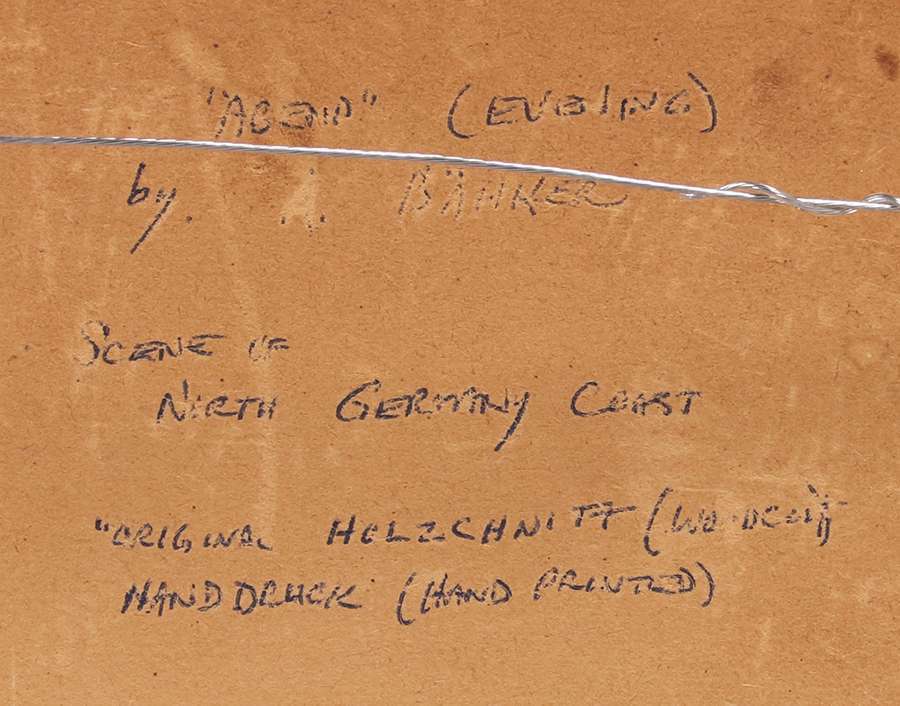 "ABEND" (EVENING)
by. A. BÄHKER
SCENE OF
NORTH GERMANY COAST
"ORIGINAL HOLZCHNITT (WOODCUT)
HANDDRUCK (HAND PRINTED)